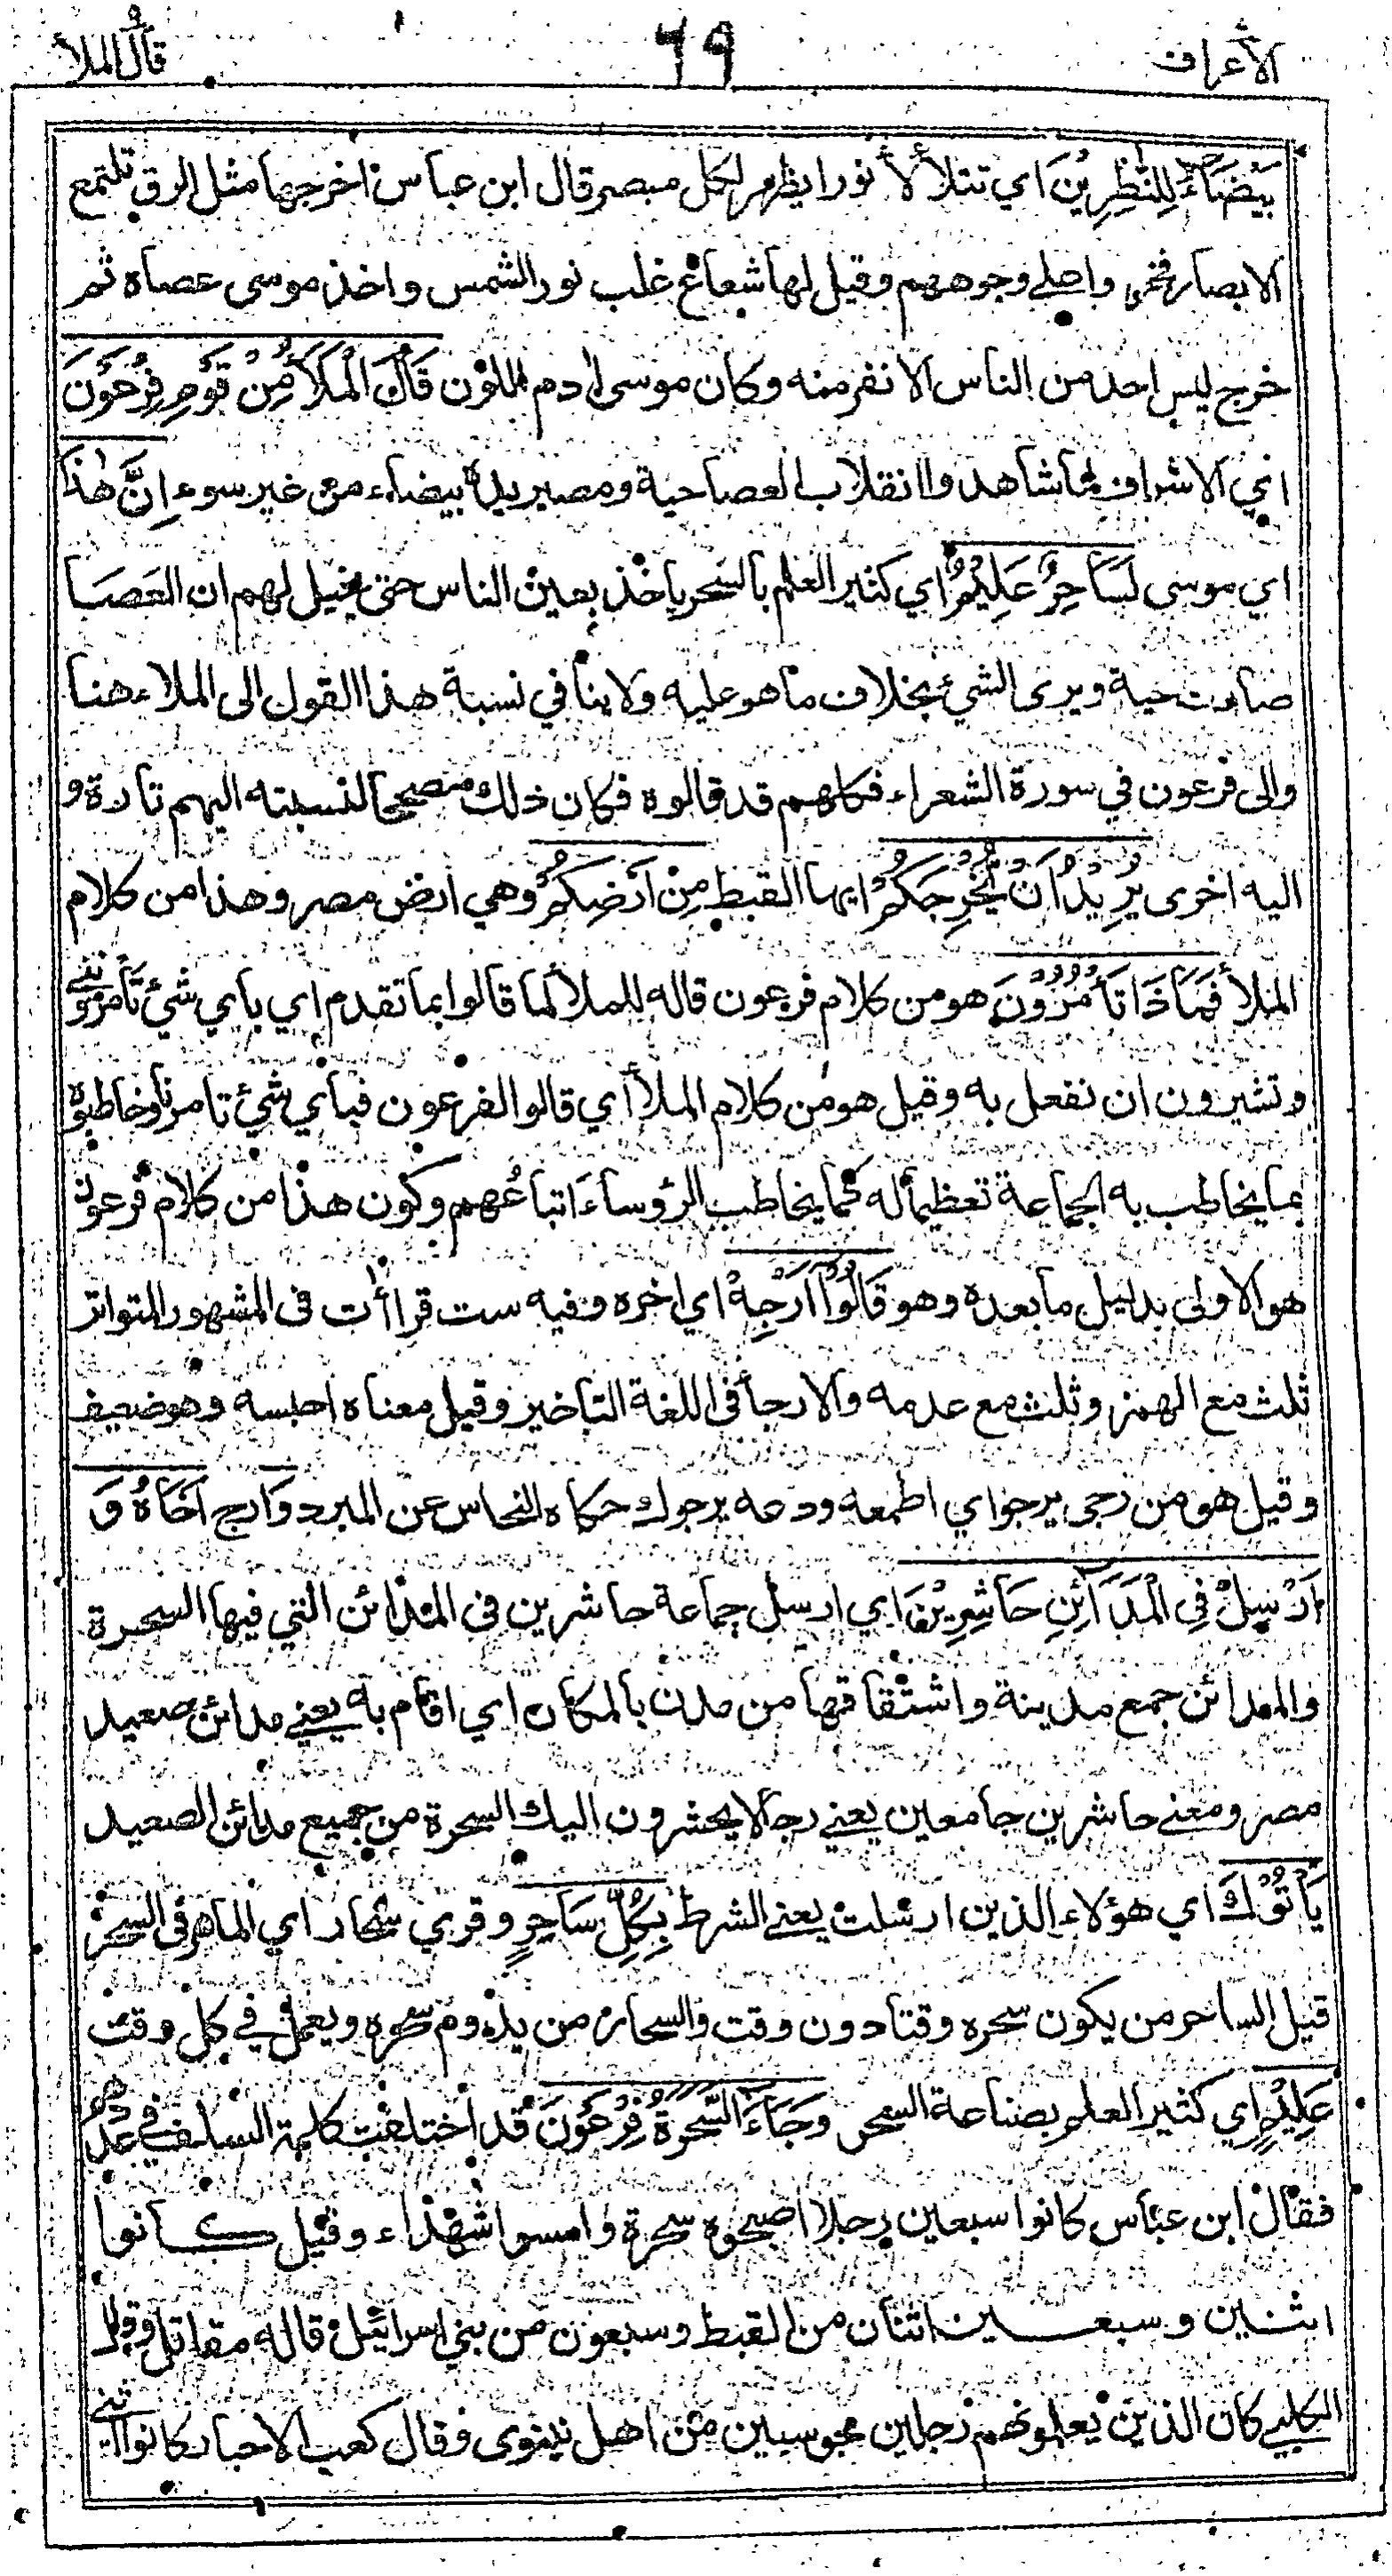 الأعراف ٦٩ قال الملأ
بَيْضَآءُ لِلنّٰظِرِيْنَ اي تتلألأ نورا يظهر لكل مبصر قال ابن عباس اخرجها مثل البرق تلتمع
الابصار فخروا على وجوههم وقيل لها شعاع غلب نور الشمس واخذ موسى عصاه ثم
خرج ليس احد من الناس الا نفر منه وكان موسى ادم اللون قَالَ الْمَلَأُ مِنْ قَوْمِ فِرْعَوْنَ
اي الاشراف لما شاهدوا انقلاب العصا حية ومصير يده بيضاء من غير سوء اِنَّ هٰذَا
اي موسى لَسَاحِرٌ عَلِيْمٌ اي كثير العلم بالسحر ياخذ بعين الناس حتى يخيل لهم ان العَصَا
صارت حية ويرى الشيء بخلاف ما هو عليه ولا ينافي نسبة هذا القول الى الملاء هنا
والى فرعون في سورة الشعراء فكلهم قد قالوه فكان ذلك مصححا لنسبته اليهم تارة و
اليه اخرى يُرِيْدُ اَنْ يُّخْرِجَكُمْ ايها القبط مِنْ اَرْضِكُمْ وهي ارض مصر وهذا من كلام
الملأ فَمَاذَا تَأْمُرُوْنَ هو من كلام فرعون قاله للملأ لما قالوا بما تقدم اي باي شيء تأمرونني
وتشيرون ان نفعل به وقيل هو من كلام الملأ أي قالوا لفرعون فبأي شيء تامرنا وخاطبوه
بما يخاطب به الجماعة تعظيما له كما يخاطب الرؤساءَ اتباعُهم وكون هذا من كلام فرعون
هو الاولى بدليل ما بعده وهو قَالُوْا اَرْجِهْ اي اخره وفيه ست قراأت فى المشهور المتواتر
ثلث مع الهمز وثلث مع عدمه والارجأ فى اللغة التاخير وقيل معناه احبسه وهو ضعيف
وقيل هو من رجى يرجو اي اطمعه ودعه يرجوك حكاه النحاس عن المبرد وارج اَخَاهُ وَ
اَرْسِلْ فِى الْمَدَآئِنِ حَاشِرِيْنَ اي ارسل جماعة حاشرين فى المدائن التي فيها السحرة
والمدائن جمع مدينة واشتقاقها من مدن بالمكان اي اقام به يعني مدائن صعيد
مصر ومعنى حاشرين جامعين يعني رجالا يحشرون اليك السحرة من جميع مدائن الصعيد
يَأْتُوْكَ اي هؤلاء الذين ارسلت يعني الشرط بِكُلِّ سَاحِرٍ وقري سحار اي الماهر فى السحر
قيل الساحر من يكون سحره وقتا دون وقت والسحار من يدوم سحره ويعمل في كل وقت
عَلِيْمٍ اي كثير العلم بصناعة السحر وَجَآءَ السَّحَرَةُ فِرْعَوْنَ قد اختلفت كلمة السلف في عددهم
فقال ابن عباس كانوا سبعين رجلا اصبحوا سحرة وامسوا شهداء وقيل كانوا
اثنين وسبعين اثنان من القبط وسبعون من بني اسرائيل قاله مقاتل وقال
الكلبي كان الذين يعلمونهم رجلين مجوسيين من اهل نينوى وقال كعب الاحبار كانوا اثني